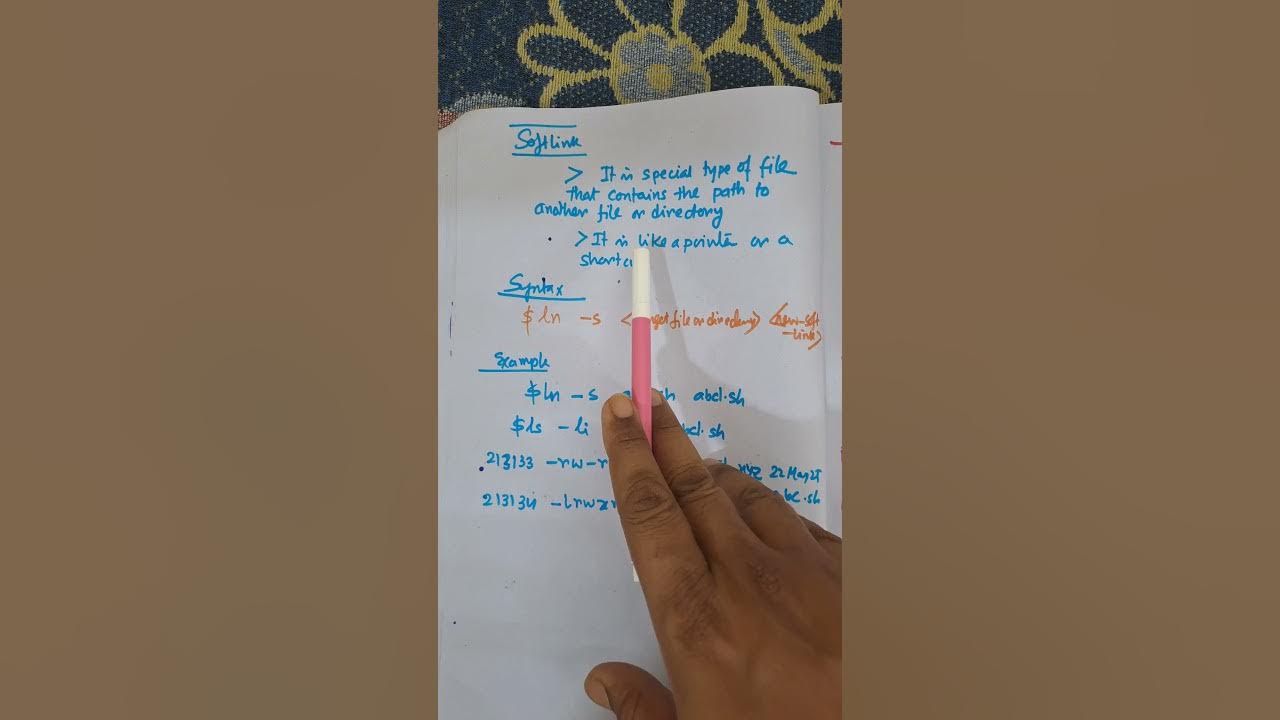 Softlink
> It is special type of file
that contains the path to
another file or directory
> It is like a pointer or a
shortcu
Syntax
$ ln -s < get file or directory> <new-soft
-link>
Example
$ ln -s sh abcl.sh
$ ls -li bcl.sh
213133 -rw-r 22 May 25
213134 -lrwxr abc.sh